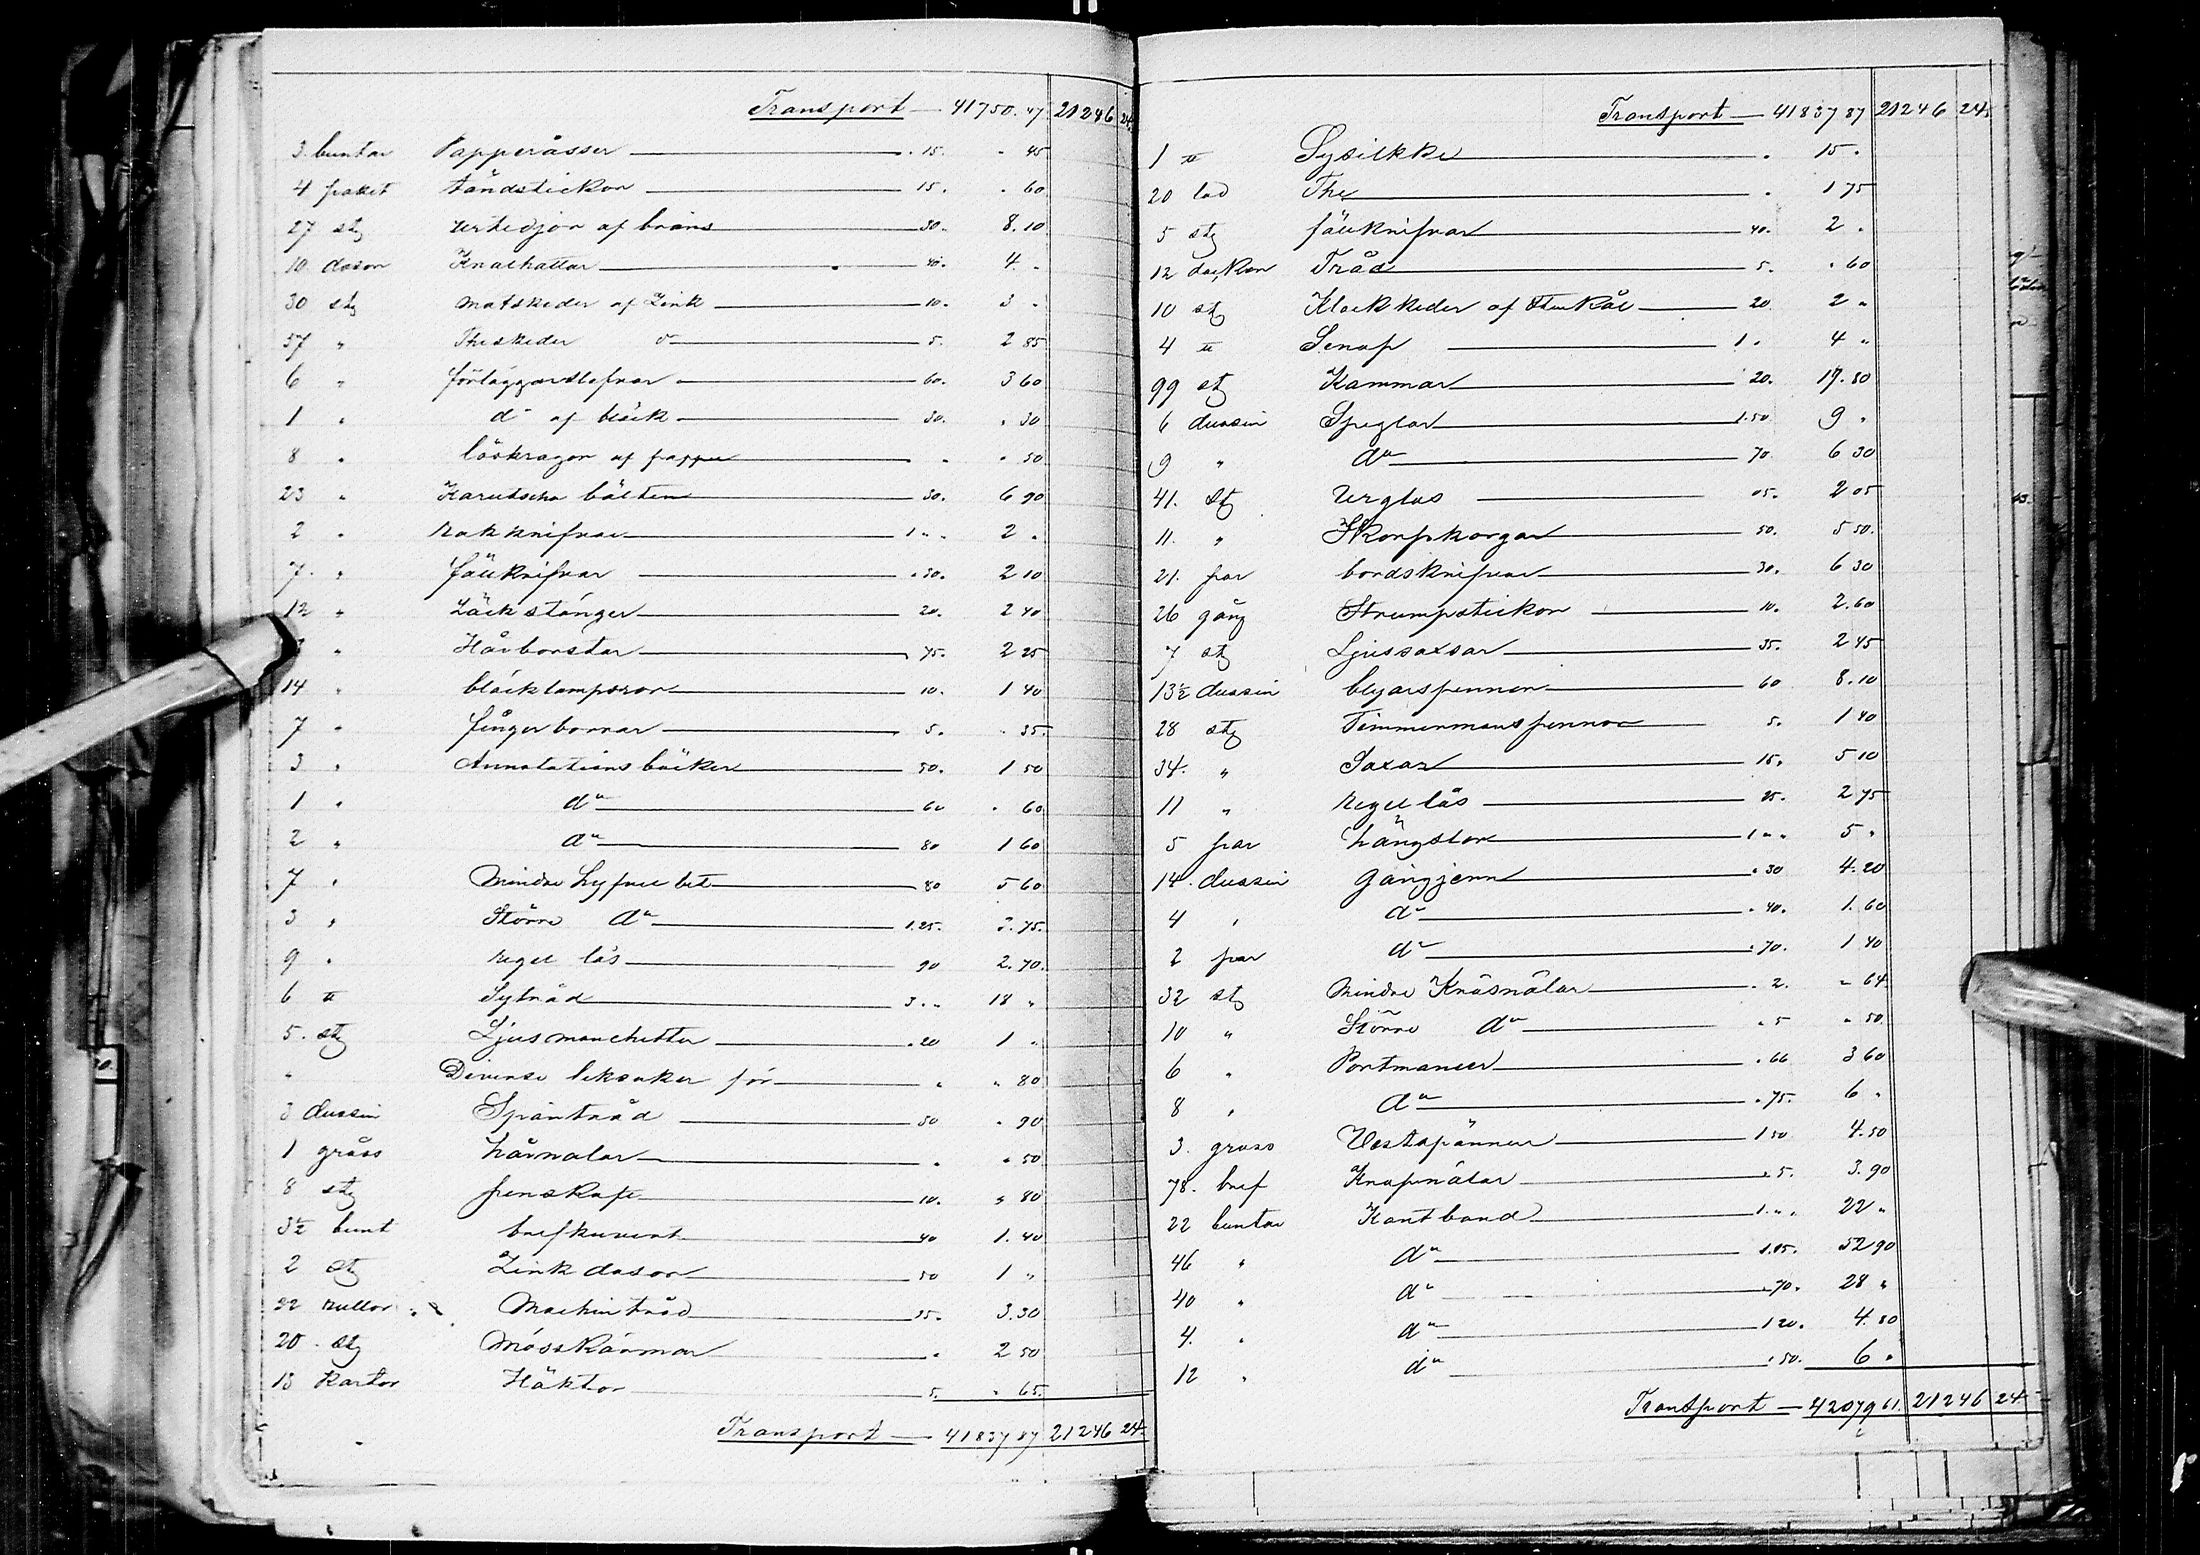 Transport — 41750.47 21246 24
3 buntar Papperåsser — 15. " 45
4 paket tändstickor — 15. " 60
27 stz urkedjor af bräns — 30. 8.10
10 dosor Knalhattar — 40. 4 "
30 stz matskeder af Zink — 10. 3 "
57 " Theskeder d° — 5. 2 85
6 " förläggarslefvar — 60. 3 60
1 " d° af bläck — 30. " 30
8 " löskragar af papper — " " 50
23 " Karutscha bälten — 30. 6 90
2 " Rakknifvar — 1 " " 2 "
7 " fällknifvar — " 30. 2 10
12 " Läckstänger — 20. 2 40
" Hårborstar — 75. 2 25
14 " bläcklamporor — 10. 1 40
7 " fingerborrar — 5. " 35
3 " Annotationsböcker — 50. 1 50
1 " d° — 60 " 60
2 " d° — 80 1 60
7 " Mindre hyfvelbet — 80 5 60
3 " Större d° — 1.25. 3.75.
9 " regel lås — 30 2.70.
6 ℔ Sytråd — 3. " 18 "
5. stz Ljusmanchetter — " 20 1 "
" Diverse leksaker för — " " 80
3 dussin Späntråd — 30 " 90
1 gråss hårnålar — " " 50
8 stz penskaft — 10. " 80
3½ bunt brefkuvert — 40 1.40
2 stz Zinkdosor — 50 1 "
22 rullor Maskintråd — 15. 3.30
20 stz Mösskärmar — " 2 50
13 Kartor Häktor — 5. " 65.
Transport — 41837 87 21246 24
Transport — 41837 87 21246 24
1 ℔ Sysilkke — " 15 "
20 lod The — " 1 75
5 stz fällknifvar — 40. 2 "
12 dockor Tråd — 5. " 60
10 stz Klockkeder af Stenkål — 20 2 "
4 ℔ Senap — 1 " 4 "
99 stz Kammar — 20. 19.80
6 dussin Speglar — 1.50 9 "
9 " d° — 70. 6 30
41. stz Urglas — 05. 2 05
11. " Skorpkorgar — 50. 5 50.
21. par bordsknifvar — 30. 6 30
26 gång Strumpstickor — 10. 2.60
7 stz Ljussaxsar — 35. 2 45
13½ dussin blyarspennor — 60 8.10
28 stz Timmermanspennor — 5. 1 40
34. " Saxar — 15. 5 10
11 " regellås — 25. 2 75
5 par hängslor — 1 " " 5 "
14. dussin gångjern — " 30 4.20
4 " d° — " 40. 1.60
2 par d° — " 70. 1 40
32 stz Mindre Kråsnålar — " 2. " 64
10 " Större d° — " 5 " 50
6 " Portmanéer — " 60 3 60
8 " d° — " 75. 6 "
3. gross Vestapännor — 1 50 4.50
78. bref Knapnålar — " 5. 3.90
22 buntar Kantband — 1 " " 22 "
46 " d° — 1.15. 52 90
40 " d° — " 70. 28 "
4. " d° — 1 20. 4.80
12 " d° — " 50. 6 "
Transport — 42079 61. 21246 24